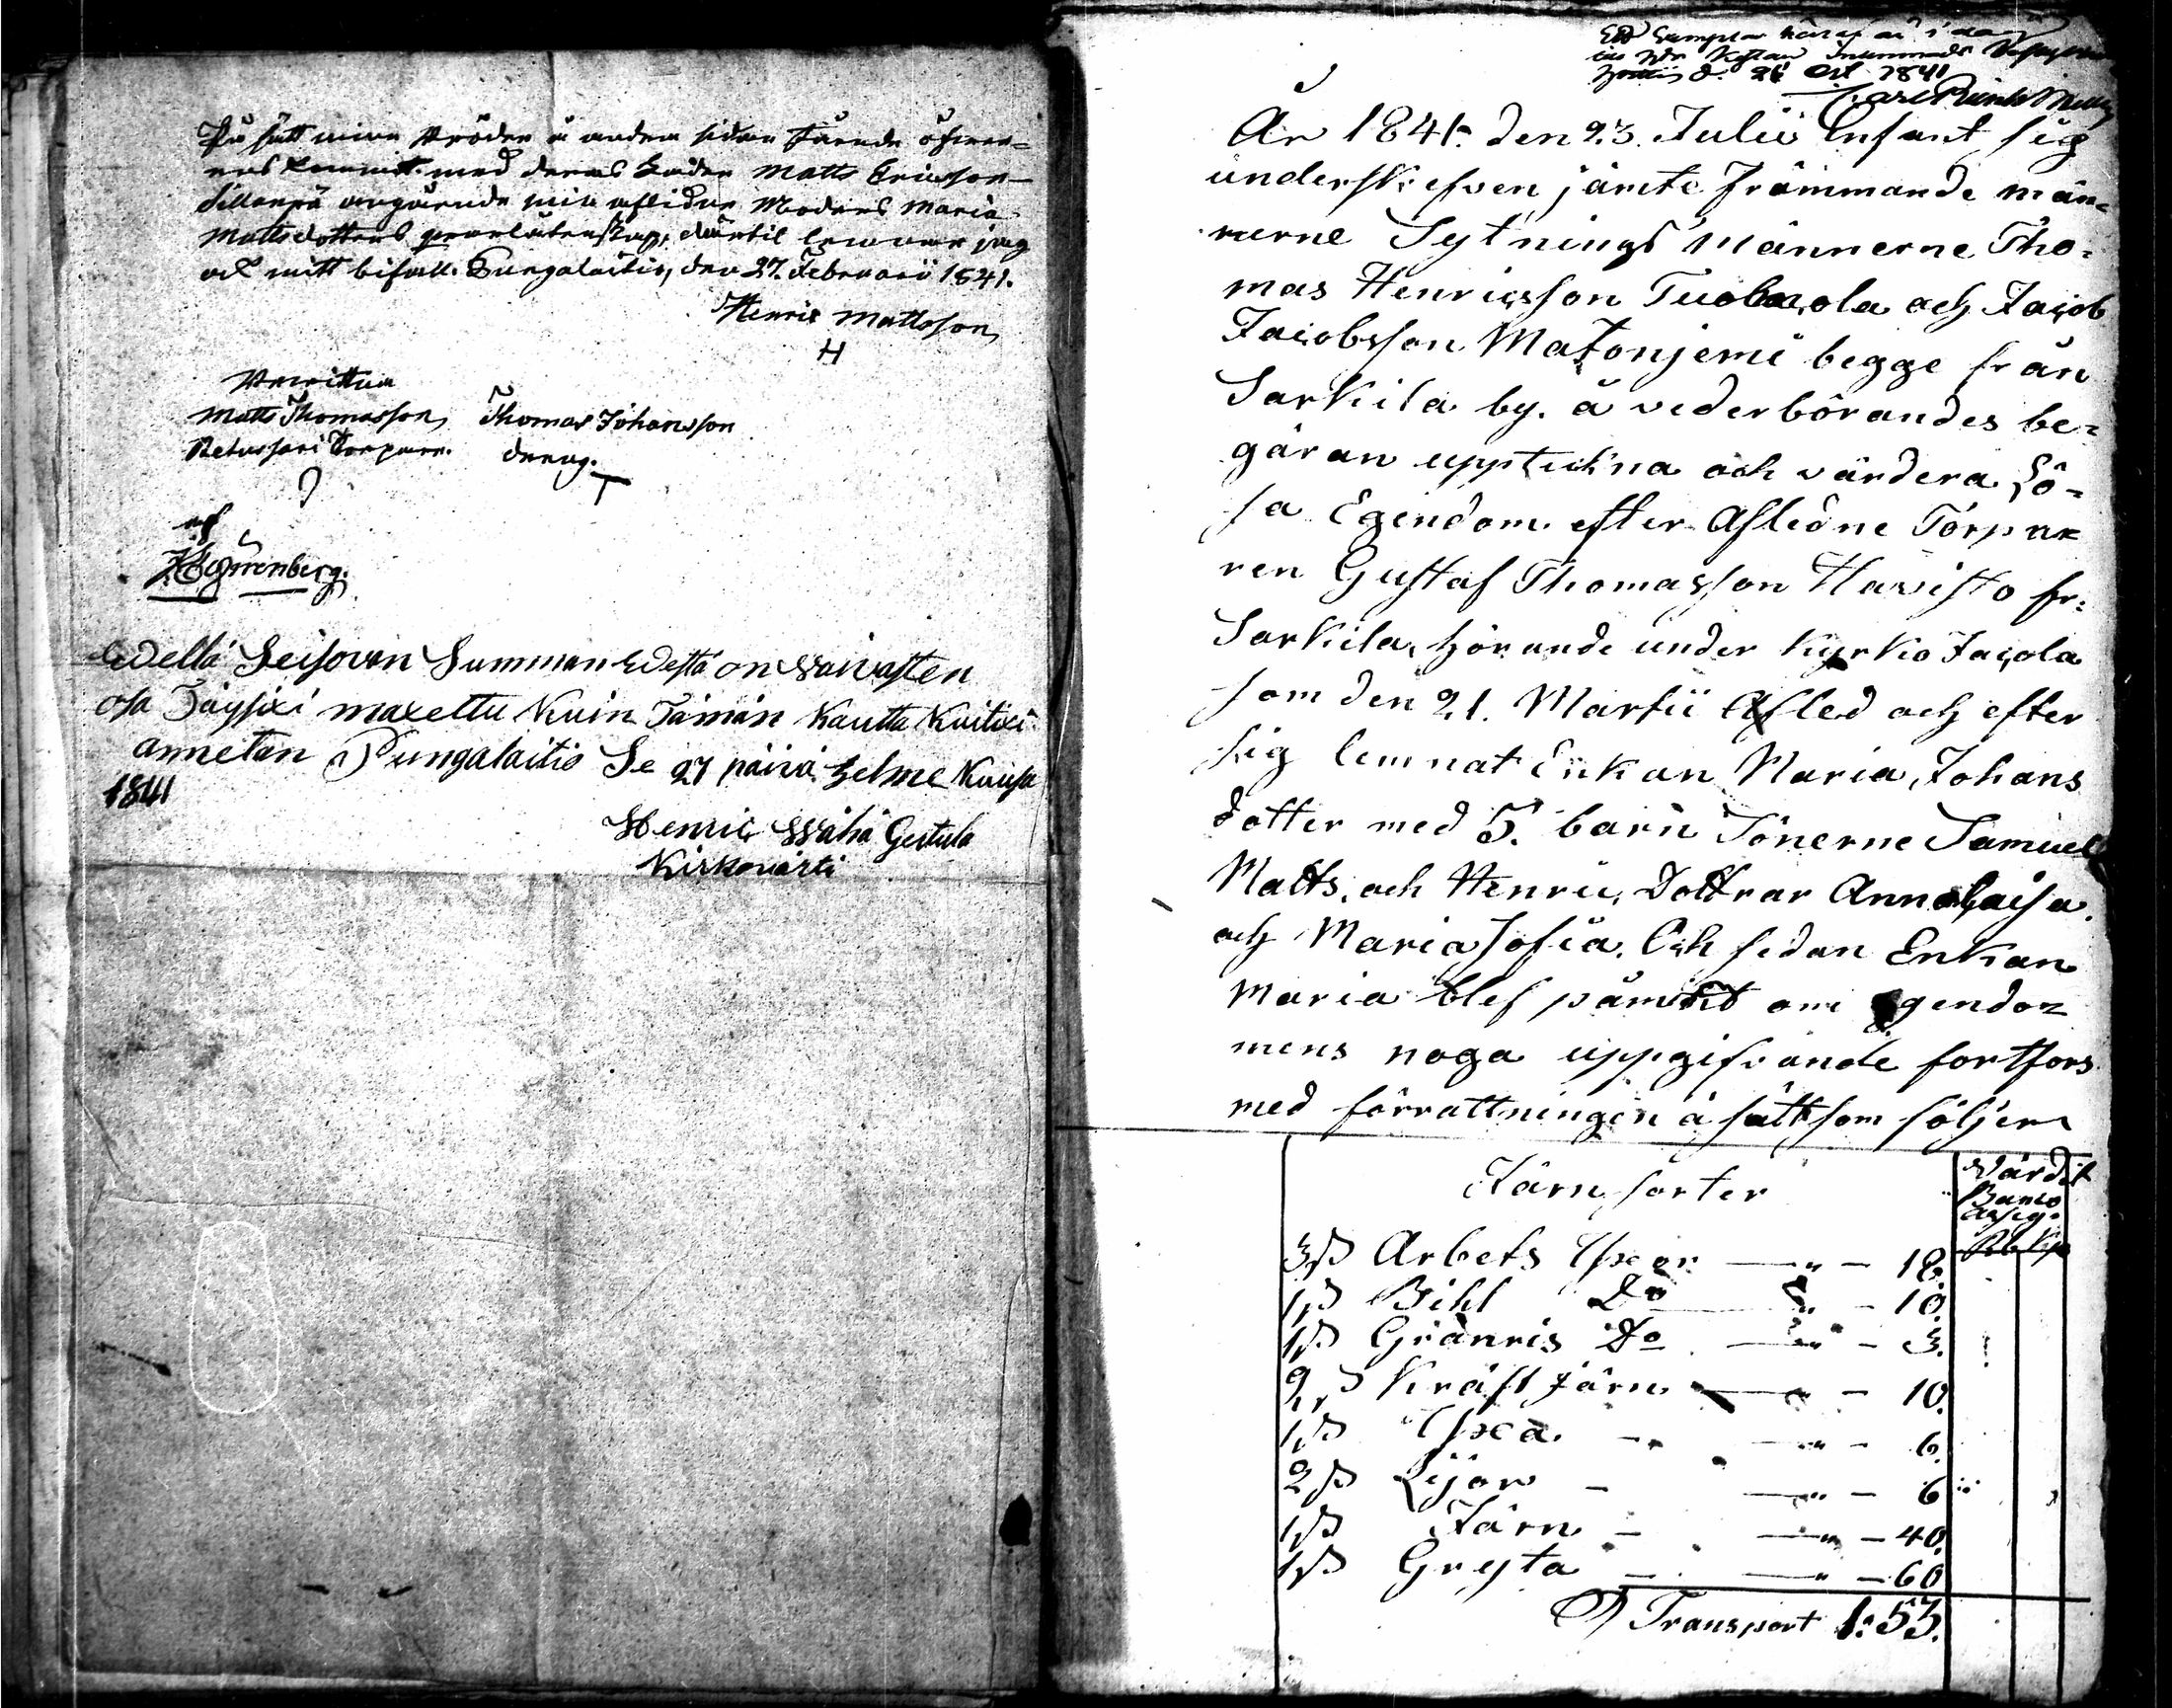 På sätt mine bröder å andra sidan härende öfverens
kommit med deras Fader Matts Ericsson
Sillanpä angående min aflidne Moders Maria
Mattsdotters qvarlåtenskap, därtil lemnar jag
ock mitt bifall. Pungalaitio, den 27. Februarii 1841.
Henric Mattsson
H
Matts Thomasson
Retussari Torpare.
Thomas Johansson
dräng.
T
Edellä Seisovan Summan Edestä on waivasten
osa Täysixi maxettu Kuin Tämän Kautta Kuitixi
annetan Pungalaitio Se 27 päivä Helme Kuusa
1841
Henric Wähä Gertula
Kirkowärti
Ett Exemplar häraf är i dag
d. 26 Oct 1841
År 1841. den 23. Julii Infant sig
underskrefven jämte främmande män-
nerne Sytnings Männerne Tho-
mas Henricsson Tuobaola och Jacob
Jacobsson Matonjemi begge från
Sarkila by. å vederbörandes be-
gäran upptekna och värdera Lö-
sa Egendom efter Afledne Torpar
ren Gustaf Thomasson Havisto fr:
Sarkila hörande under Kyrkio Jacola
som den 21. Martii Afled och efter
sig lemnat Enkan Maria Johans
dotter med 5. barn Sönerne Samuel
Matts, och Henric, Dottrar Annalaisa
och Maria Sofia. Och sedan Enkan
Maria blef påmint om Egendo=
mens noga uppgifvande fortfors
med förrattningen å sätt som följer
Järn sorter
Värdet
Banco
Assig.
Rb Kp
3 st Arbets Yxor — " — 18.
1 st Bihl Do — " — 10.
1 st Granris Do — " — 3.
2 st Kräft Järn — " — 10.
1 st Yxa — — " — 6.
2 st Lijor — — " — 6
1 st Järn — — " — 40.
1 st Gryta — — " — 60
Transport 1:53.